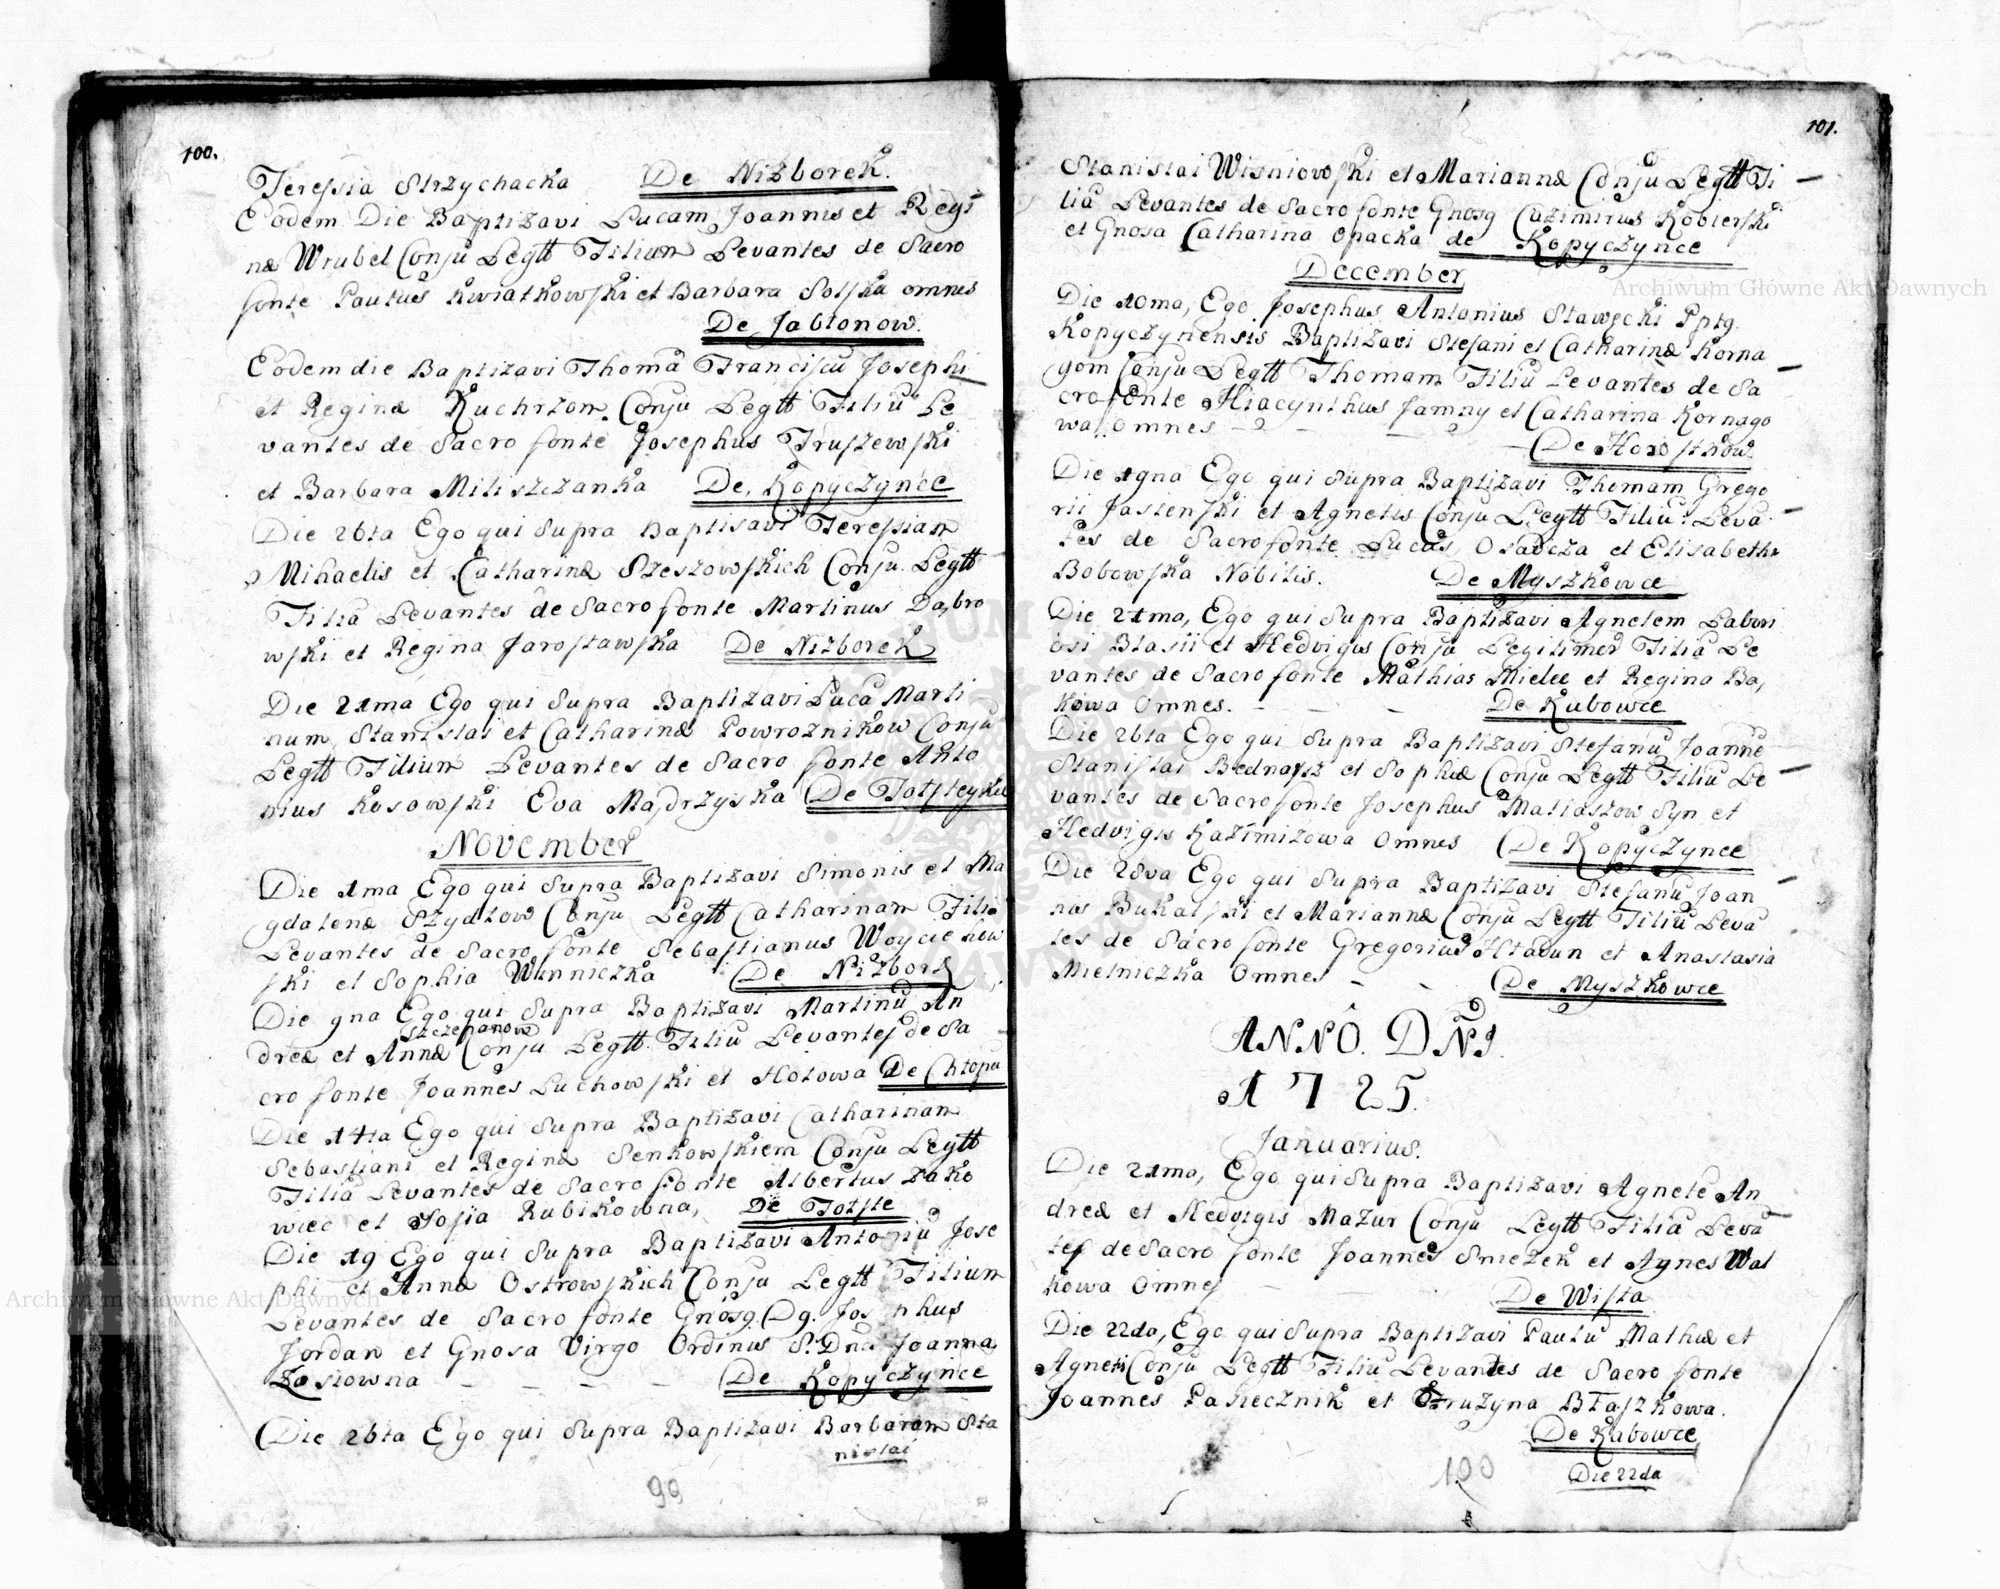 100.
Teressia Strzychacka De Nizborek.
Eodem Die Baptizavi Lucam Joannis et Regi
næ Wrubel Conju Legtt Filium Levantes de Sacro
fonte Paulus Kwiatkowski et Barbara Solska omnes
De Jabłonow.
Eodem die Baptizavi Thomā Franciscū Josephi
et Reginæ Kuchrzon Conju Legtt Filiū Le
vantes de Sacro fonte Josephus Truszewski
et Barbara Miliszczanka De Kopyczynce
Die 26ta Ego qui Supra Baptisavi Teressiam
Mihaelis et Catharinæ Szeszowskich Conju Legtt
Filiā Levantes de Sacro fonte Martinus Dąbro
wski et Regina Jarosławska De Nizborek
Die 21ma Ego qui Supra Baptizavi Lucā Marti
num Stanislai et Catharinæ Powroznikow Conju
Legtt Filium Levantes de Sacro fonte Anto
nius Kosowski Eva Mądrzyska De Tołsteykie
November
Die 1ma Ego qui Supra Baptizavi Simonis et Ma
gdalenæ Szydłow Conju Legtt Catharinam Filiā
Levantes de Sacro fonte Sebastianus Woyciehow
ski et Sophia Winniczka De Nizbork
Die 9na Ego qui Supra Baptizavi Martinū An
szczepanow
dreæ et Annæ Conju Legtt Filiū Levantes de Sa
cro fonte Joannes Luchowski et Hołowa De Chłopu
Die 14ta Ego qui Supra Baptizavi Catharinam
Sebastiani et Reginæ Senkowskiem Conju Legtt
Filiā Levantes de Sacro fonte Albertus Zako
wiec et Zofia Rubikowna, De Tołste
Die 19 Ego qui Supra Baptizavi Antoniū Jose
phi et Annæ Ostrowskich Conju Legtt Filium
Levantes de Sacro fonte Gnosg Dg. Josephus
Jordan et Gnosa Virgo Ordinus S. Dna Joanna
Zasiowna De Kopyczynce
Die 26ta Ego qui Supra Baptizavi Barbaram Sta
nislai
99
101.
Stanislai Wisniowski et Mariannæ Conju Legtt Fi
liā Levantes de Sacro fonte Gnosg Cazimirus Kobierski
et Gnosa Catharina Opacka de Kopyczynce
December
Die 10ma, Ego Josephus Antonius Stawecki Pptg
Kopyczynensis Baptizavi Stefani et Catharinæ Korna
gom Conju Legtt Thomam Filiū Levantes de Sa
cro fonte Hiacynthus Jamny et Catharina Kornago
wa Omnes De Horostkow.
Die 19na Ego qui Supra Baptizavi Thomam Grego
rii Jasienski et Agnetis Conju Legtt Filiū Leva
tes de Sacro fonte Lucas Osadcza et Elisabetha
Bobowska Nobilis. De Myszkowce
Die 21ma, Ego qui Supra Baptizavi Agnetem Labori
osi Blasii et Hedvigis Conju Legitimor Filiā Le
vantes de Sacro fonte Mathias Mielec et Regina Ba,
kowa Omnes. De Kubowce
Die 26ta Ego qui Supra Baptizavi Stefanū Joanne
Stanislai Bednarz et Sophiæ Conju Legtt Filiū Le
vantes de Sacro fonte Josephus Matiaszow Syn et
Hedvigis Kazimizowa Omnes De Kopyczynce
Die 28va Ego qui Supra Baptizavi Stefanū Joan
nas Bukalski et Mariannæ Conju Legtt Filiū Leva
tes de Sacro fonte Gregorius Hładun et Anastasia
Mielniczka Omnes De Myszkowce
ANNÔ. DÑI.
1725.
Januarius.
Die 21ma, Ego qui Supra Baptizavi Agnetē An
dreæ et Hedvigis Mazur Conju Legtt Filiā Leva
tes de Sacro fonte Joannes Sniezek et Agnes Wal
kowa Omnes De Wista
Die 22da, Ego qui Supra Baptizavi Paulū Mathiæ et
Agneti Conju Legtt Filiū Levantes de Sacro fonte
Joannes Pasiecznik et Struzyna Błaszkowa.
De Kabowce
Die 22da
100
Archiwum Główne Akt Dawnych
Archiwum Główne Akt Dawnych